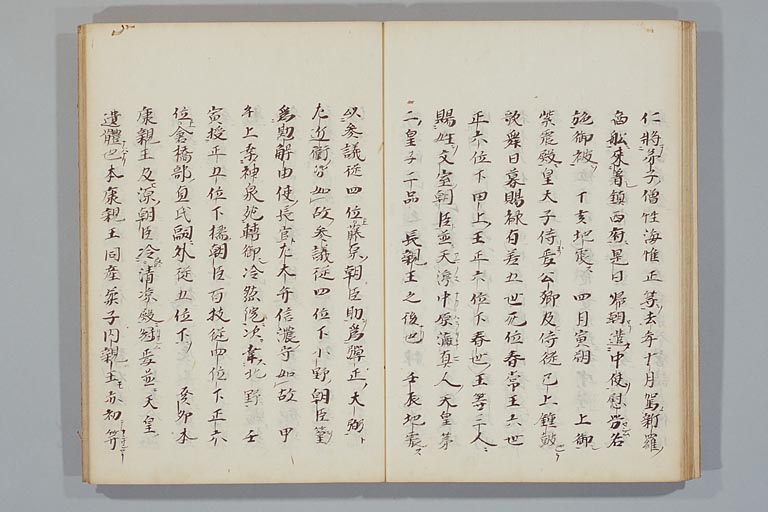 仁將弟子僧性海惟正等去年十月駕新羅
商舩來着鎮西府是日歸朝遣中使慰労各
施御被　丁亥地震　四月寅朔　上御
紫宸殿皇太子侍焉公卿及侍従已上鐘鼓
歌舞日暮賜禄有差丑世无位春常王六世
正六位下甲上王正六位下春世王等三人
賜姓文室朝臣並天渟中原瀛真人天皇第
二皇子二品長親王之後也　壬辰地震
以参議従四位藤原朝臣助為弾正大弼
左近衛如故参議従四位下小野朝臣篁
為勘解由使長官左大弁信濃守如故　甲
午上幸神泉苑轉御冷然院次幸北野　壬
寅授正五位下橘朝臣百枝従四位下正六
位倉橋部直氏嗣外従五位下　癸卯本
康親王及源朝臣冷清凉殿冠焉並天皇
遺體也本康親王同産柔子内親王亦初笄